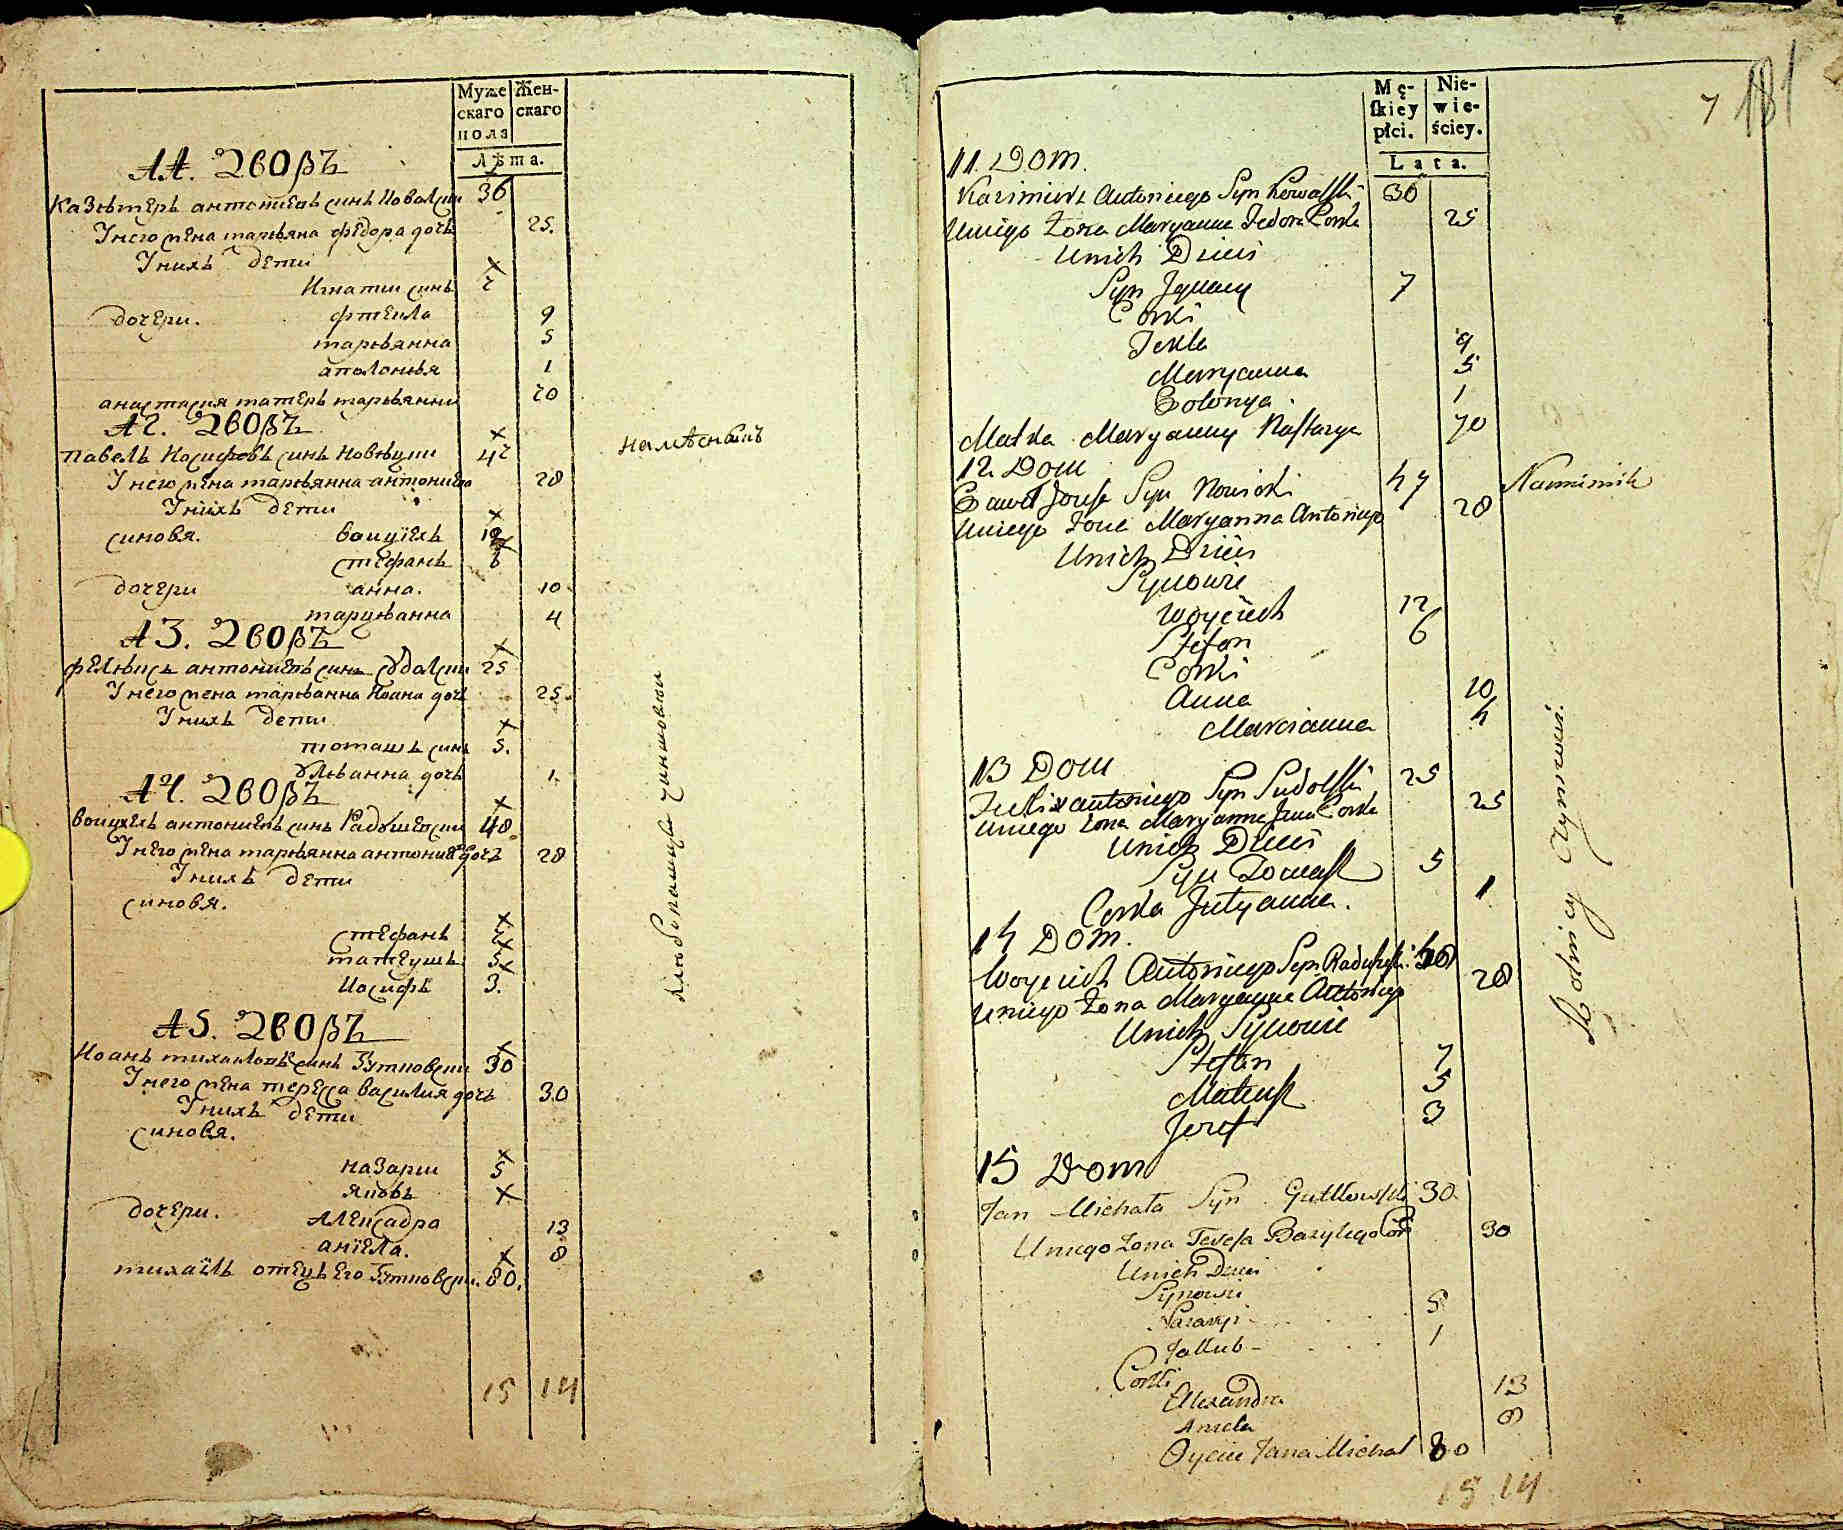 Муже
скаго
пола
Жен-
скаго
Лѣта.
11. Дворъ
Казѣмеръ антониевъ синъ Ковалски 36
У него жена марьяна федора дочь 25.
У нихъ дети
Игнати синъ 7
дочери. фтекла 9
марьянна 5
аполонья 1
анастасия матерь марьянни 70
12. Дворъ
Павелъ Иосифовъ синъ Новѣцки 47
У него жена марьянна антониева 28
У нихъ дети
синовя. воицѣехъ 12
стефанъ 6
дочери анна. 10
марцѣанна 4
13. Дворъ
фелѣксъ антониевъ синъ Судолски 25
У него жена марьванна Иоана дочь 25.
У нихъ дети
томашъ синъ 5.
Ульванна дочь 1.
14. Дворъ
Воицехъ антониевъ синъ Радушевски 48.
У него жена марьянна антониева дочь 28
У нихъ дети
синовя.
стефанъ 7
матеушъ 5
Иосифъ 3.
15. Дворъ
Иоанъ михаиловъ синъ Гутковски 30
У него жена тересса василия дочь 30
У нихъ дети
синовя.
назарии 5
яковъ
дочери. Алексадра 13
анїела. 8
михаїлъ отецъ его Гутковски. 80.
15 14
наемникъ
хлѣбопашци чиншовии
Mę-
ſkiey
płci.
Nie-
wie-
ściey.
Lata.
7 181
11 Dom.
Kazimierz Antoniego Syn Kowalſki 36
Uniego Żona Maryanna Fedora Corka 25
Unich Dzieci
Syn Jgnacy 7
Corki
Tekla 9
Maryanna 5
Polonya 1
Matka Maryanny Naſtazya 70
12 Dom
Paweł Jozefa Syn Nowicki 47
Uniego Żona Maryanna Antoniego 28
Unich Dzieci
Synowie
Woyciech 12
Stefan 6
Corki
Anna 10
Marcianna 4
13 Dom
Felix antoniego Syn Sudolſki 25
Uniego żona Maryanna Jana Corka 25
Unich Dzieci
Syn Tomaſz 5
Corka Julyanna. 1
14 Dom.
Woyciech Antoniego Syn Raduſzeſki 48
Uniego Żona Maryanna Antoniego 28
Unich Synowie
Stefan 7
Mateuſz 5
Jozef 3
15 Dom
Jan Michała Syn Gutkowſki 30
Uniego żona Tereſa Bazylego Cor 30
Unich Dzieci
Synowie
Nazaryi 5
Jakub 1
Corki
Alexandra 13
Aniela 8
Oyciec Jana Michał 80
15 14
Naiemnik
Rolnicy Czynszowi.